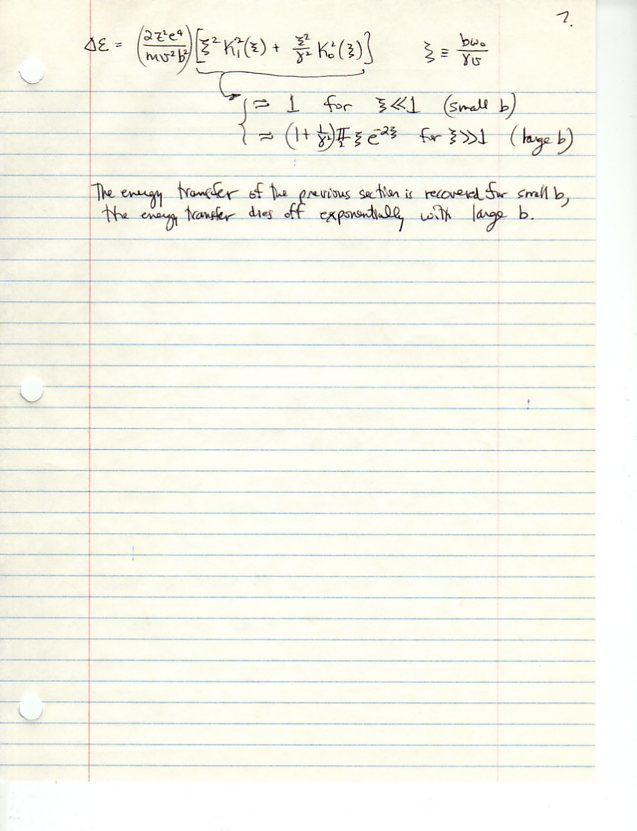 7.
Δε = (2z²e⁴/mv²b²)[ξ² K₁²(ξ) + ξ²/γ² K₀²(ξ)]   ξ ≡ bω₀/γv
⇒ 1 for ξ≪1 (small b)
⇒ (1+1/γ²)π/2 ξ e^{-2ξ} for ξ>>1 (large b)
The energy transfer of the previous section is recovered for small b,
the energy transfer dies off exponentially with large b.